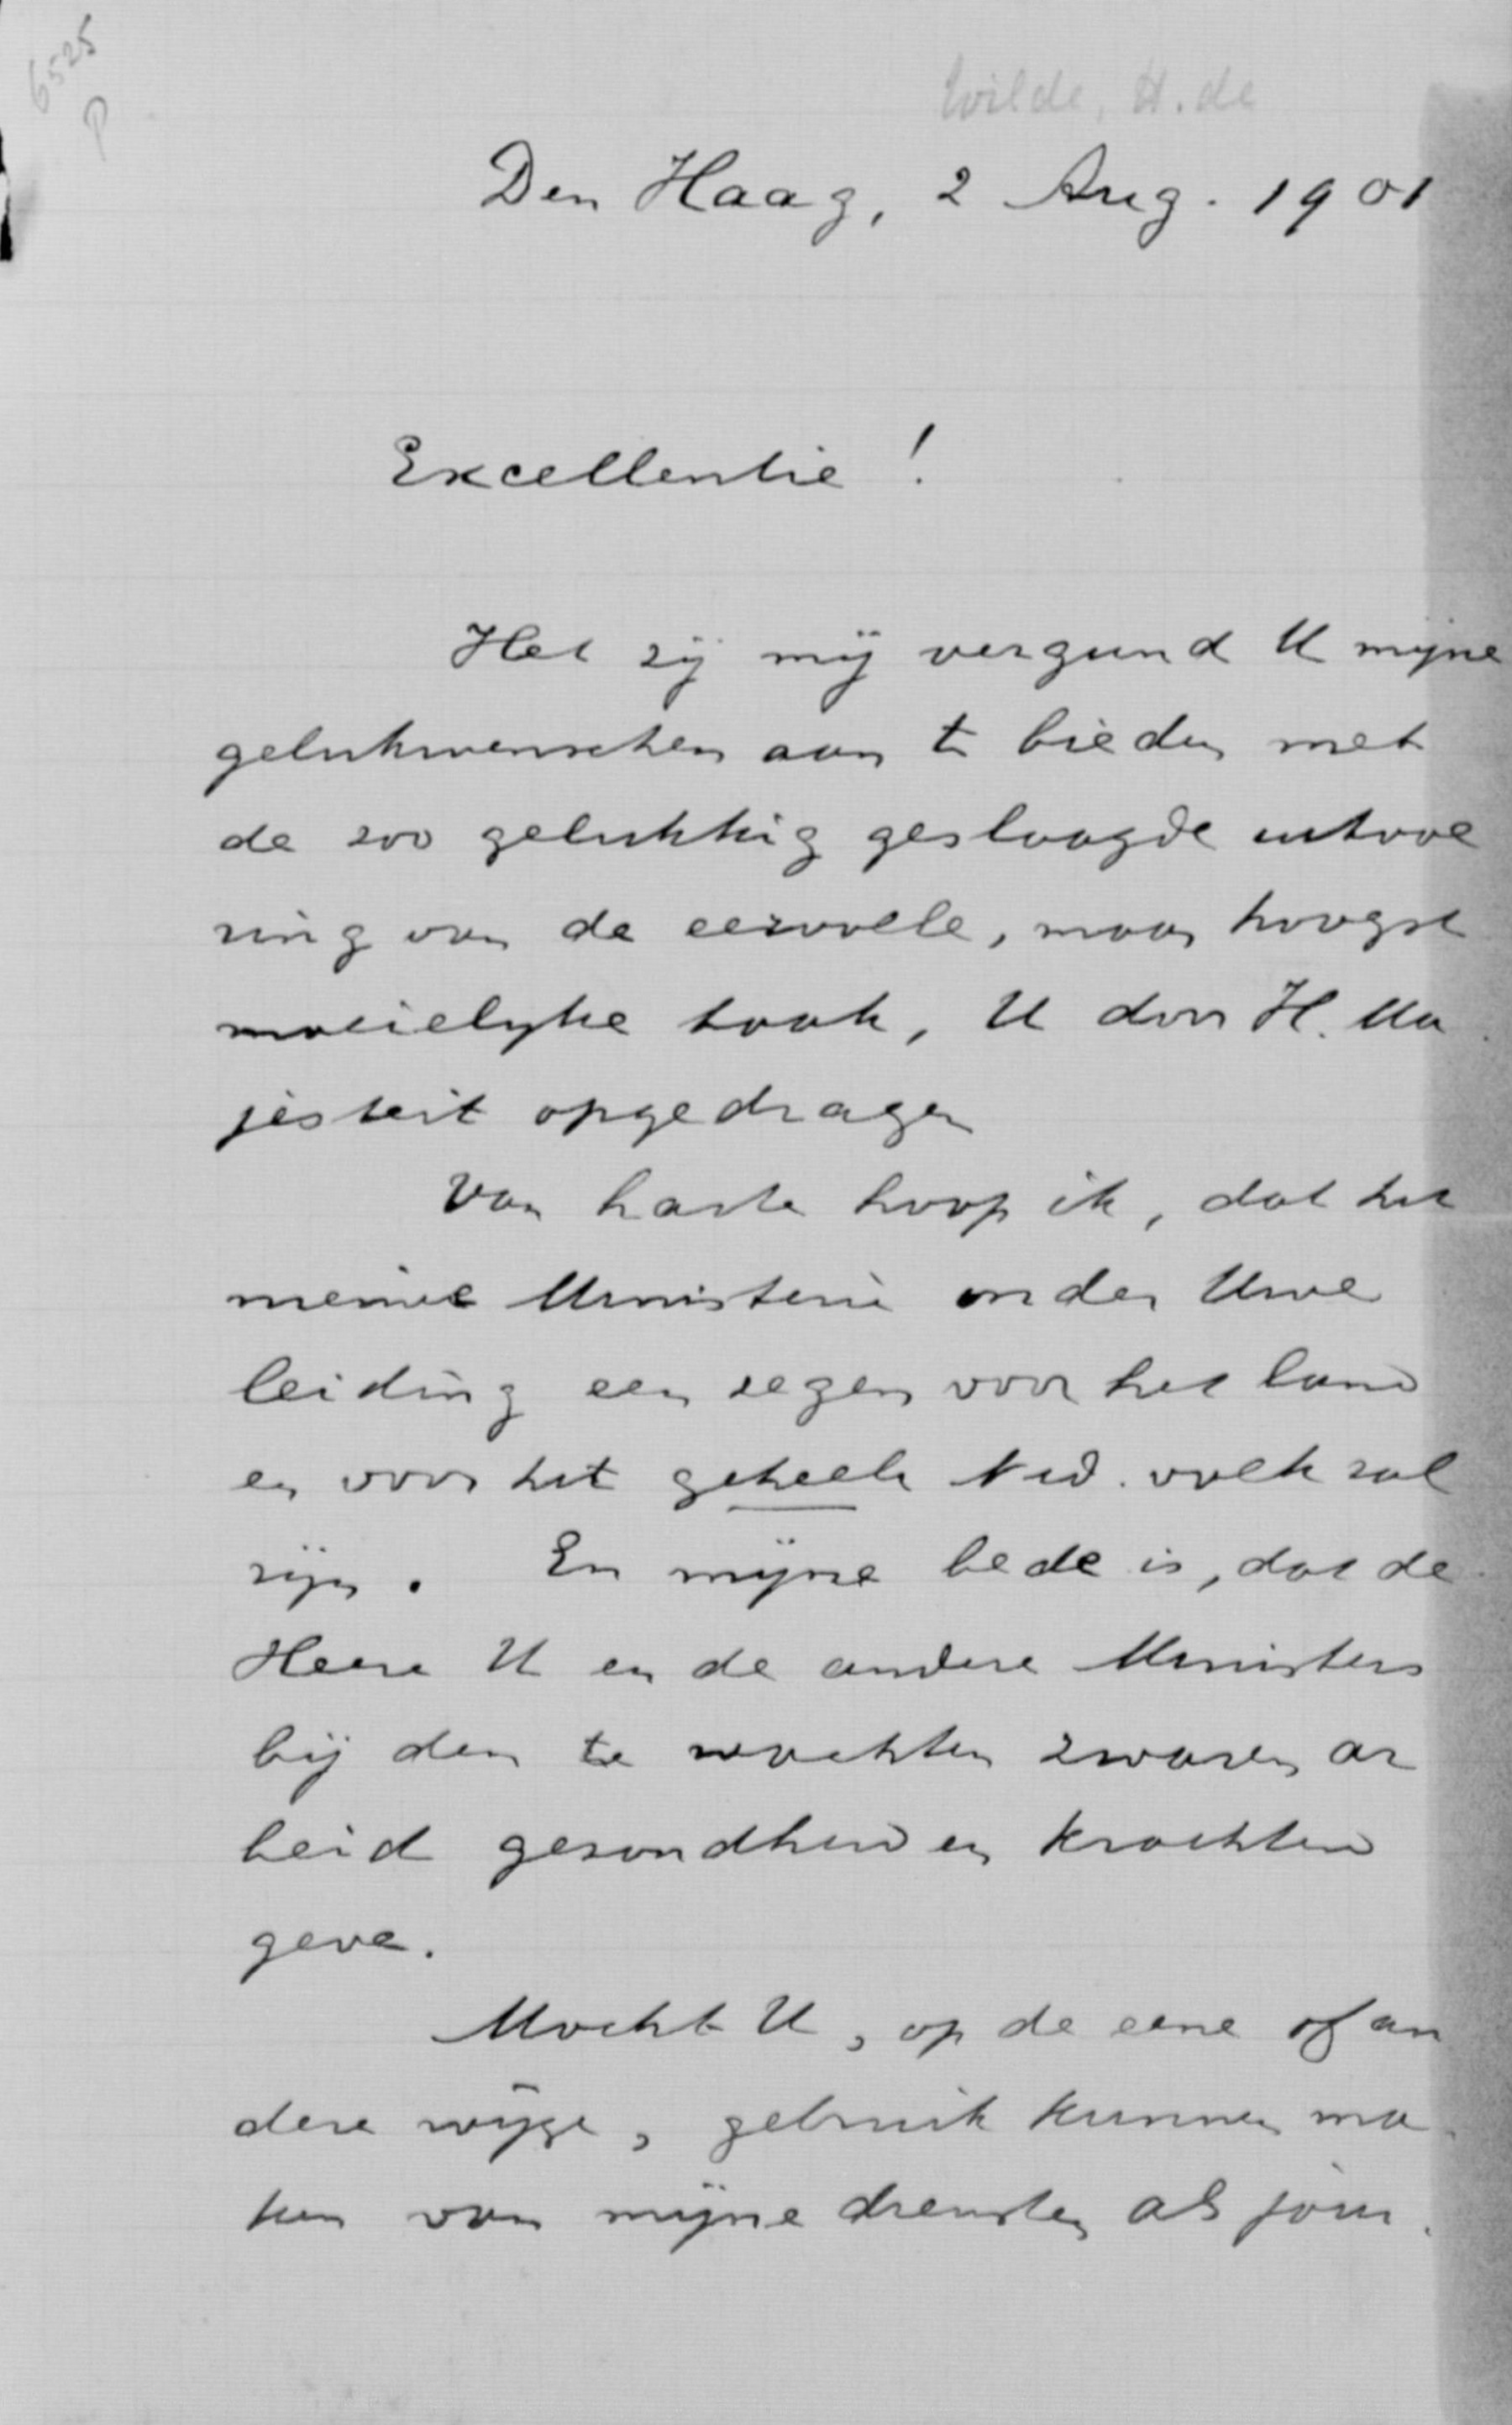 6525
P
Wilde, H. de
Den Haag, 2 Aug. 1901
Excellentie!
Het zij mij vergund U mijne
gelukwenschen aan te bieden met
de zoo gelukkig geslaagde uitvoe
ring van de eervolle, maar hoogst
moeielyke taak, U door H. Ma
jesteit opgedragen
Van harte hoop ik, dat het
nieuwe Ministerie onder Uwe
leiding een zegen voor het land
en voor het geheele Ned. volk zal
zijn. En mijne bede is, dat de
Heere U en de andere Ministers
bij den te wachten zwaren ar
beid gezondheid en krachten
geve.
Mocht U, op de eene of an
dere wijze, gebruik kunnen ma
ken van mijne diensten als jour.